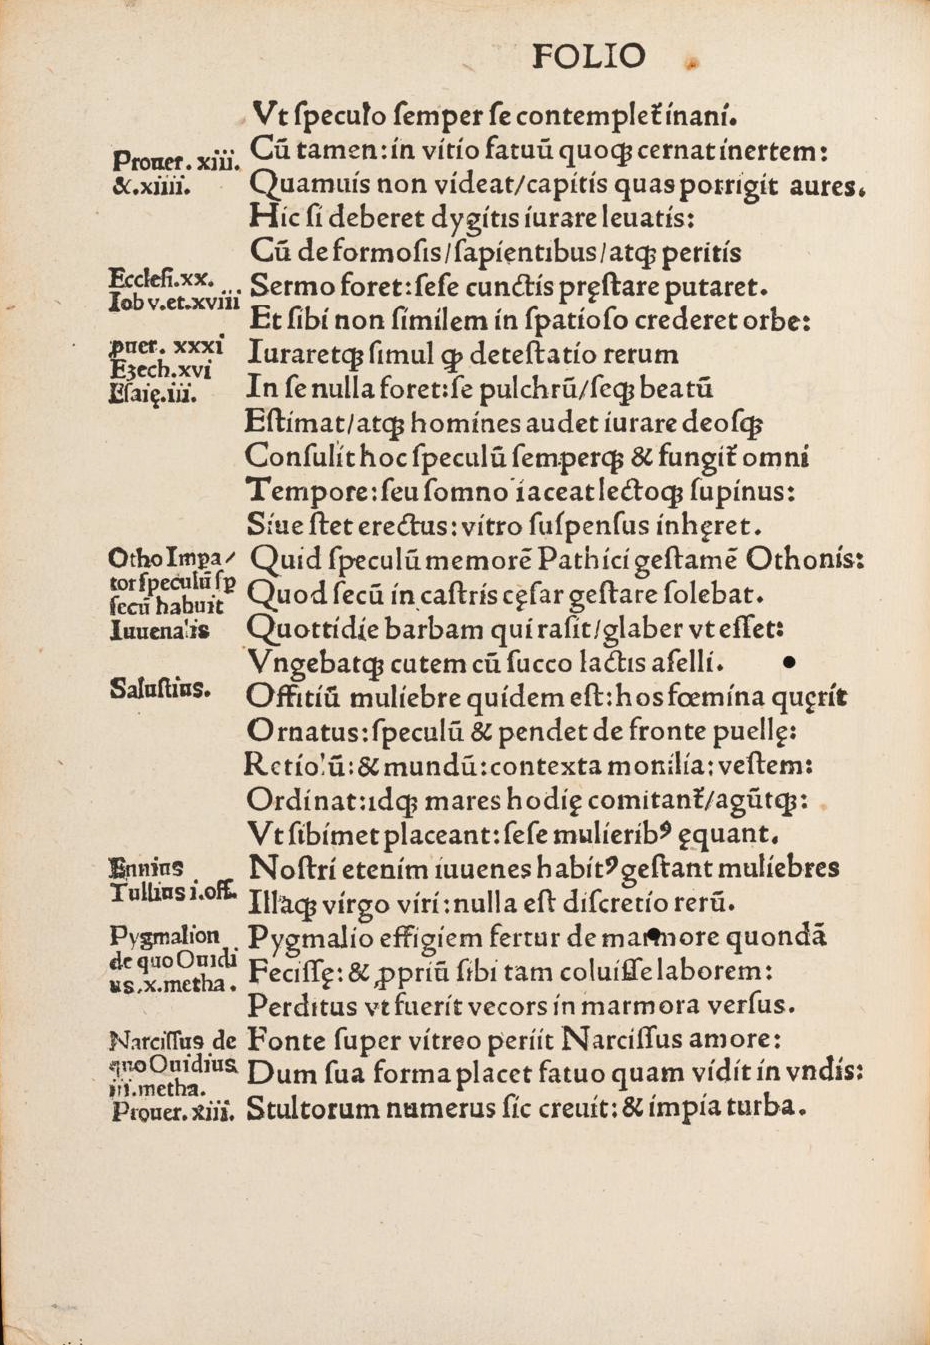 FOLIO
Vt ſpeculo ſemper ſe contemplet᷑ inani.
Cū tamen: in vitio fatuū quoqꝫ cernat inertem:
Quamuis non videat/capitis quas porrigit aures.
Hic ſi deberet dygitis iurare leuatis:
Cū de formoſis/ſapientibus/atqꝫ peritis
Sermo foret: ſeſe cunctis pręſtare putaret.
Et ſibi non ſimilem in ſpatioſo crederet orbe:
Iuraretqꝫ ſimul ꝙ deteſtatio rerum
In ſe nulla foret: ſe pulchrū/ſeqꝫ beatū
Eſtimat/atqꝫ homines audet iurare deoſqꝫ
Conſulit hoc ſpeculū ſemperqꝫ & fungit᷑ omni
Tempore: ſeu ſomno iaceat lectoqꝫ ſupinus:
Siue ſtet erectus: vitro ſuſpenſus inhęret.
Quid ſpeculū memorē Pathici geſtamē Othonis:
Quod ſecū in caſtris cęſar geſtare ſolebat.
Quottidie barbam qui raſit/glaber vt eſſet:
Vngebatqꝫ cutem cū ſucco lactis aſelli.
Offitiū muliebre quidem eſt: hos fœmina quęrit
Ornatus: ſpeculū & pendet de fronte puellę:
Retiolū: & mundū: contexta monilia: veſtem:
Ordinat: idqꝫ mares hodię comitant᷑/agūtqꝫ:
Vt ſibimet placeant: ſeſe mulieribꝰ ęquant.
Noſtri etenim iuuenes habitꝰ geſtant muliebres
Illaqꝫ virgo viri: nulla eſt diſcretio rerū.
Pygmalio effigiem fertur de marmore quondā
Feciſſę: & ꝓpriū ſibi tam coluiſſe laborem:
Perditus vt fuerit vecors in marmora verſus.
Fonte ſuper vitreo periit Narciſſus amore:
Dum ſua forma placet fatuo quam vidit in vndis:
Stultorum numerus ſic creuit: & impia turba.
Prouer. xiii.
&.xiiii.
Eccleſi.xx.
Iob v.et.xviii
ꝓuer. xxxi
Ezech.xvi
Eſaię.iii.
Otho Impa/
tor ſpeculū ſꝑ
ſecū habuit
Iuuenalis
Saluſtius.
Ennius
Tullius i.off.
Pygmalion
de quo Ouidi
us.x.metha.
Narciſſus de
quo Ouidius
iii.metha.
Prouer. xiii.